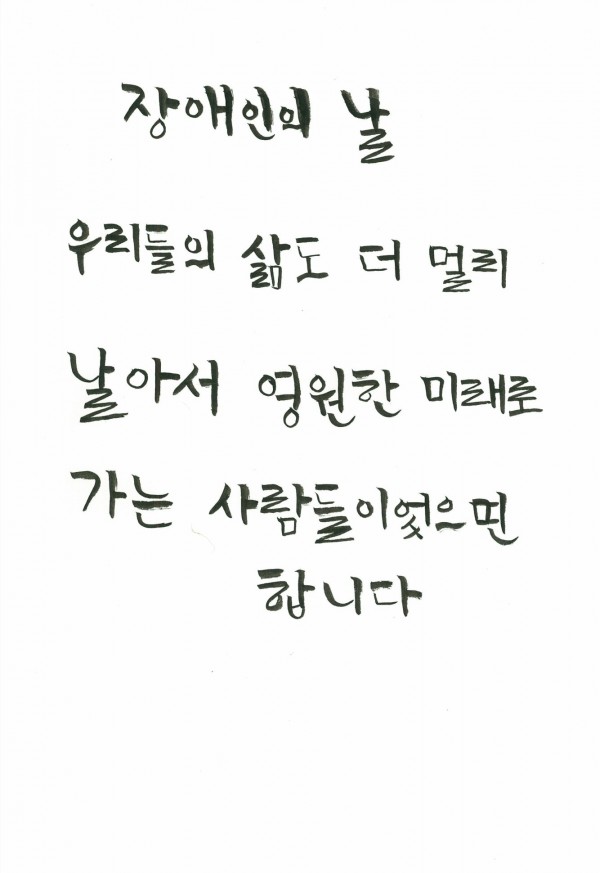 장애인의 날
우리들의 삶도 더 멀리
날아서 영원한 미래로
가는 사람들이었으면
합니다